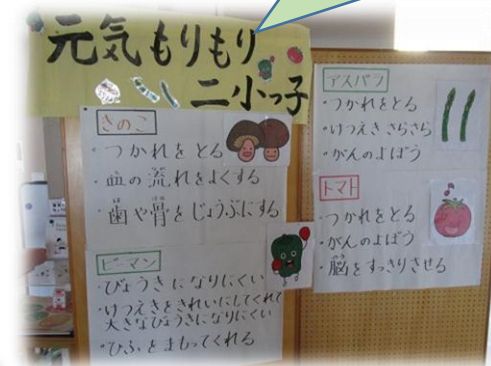 元気もりもり
二小っ子
きのこ
・つかれをとる
・血の流れをよくする
・歯や骨をじょうぶにする
ピーマン
・びょうきになりにくい
・けつえきをきれいにしてくれて
大きなびょうきになりにくい
・ひふをまもってくれる
アスパラ
・つかれをとる
・けつえきさらさら
・がんのよぼう
トマト
・つかれをとる
・がんのよぼう
・脳をすっきりさせる